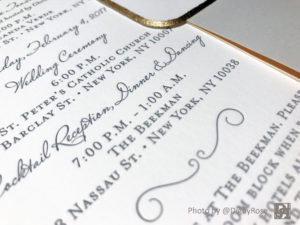 day, February 4, 20
Wedding Ceremony
6:00 P.M.
St. Peter's Catholic Church
Barclay St. • New York, NY 1000
Cocktail Reception, Dinner & Dancing
7:00 P.M. - 1:00 A.M.
The Beekman
3 Nassau St. • New York, NY 10038
At The Beekman. Please
oom block when
Photo by @D